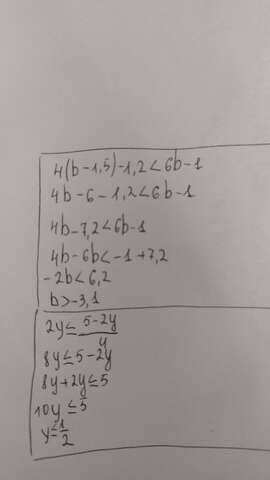 4(b-1,5)-1,2<6b-1
4b-6-1,2<6b-1
4b-7,2<6b-1
4b-6b<-1+7,2
-2b<6,2
b>-3,1
2y≤ 5-2y/4
8y≤5-2y
8y+2y≤5
10y≤5
y≤1/2